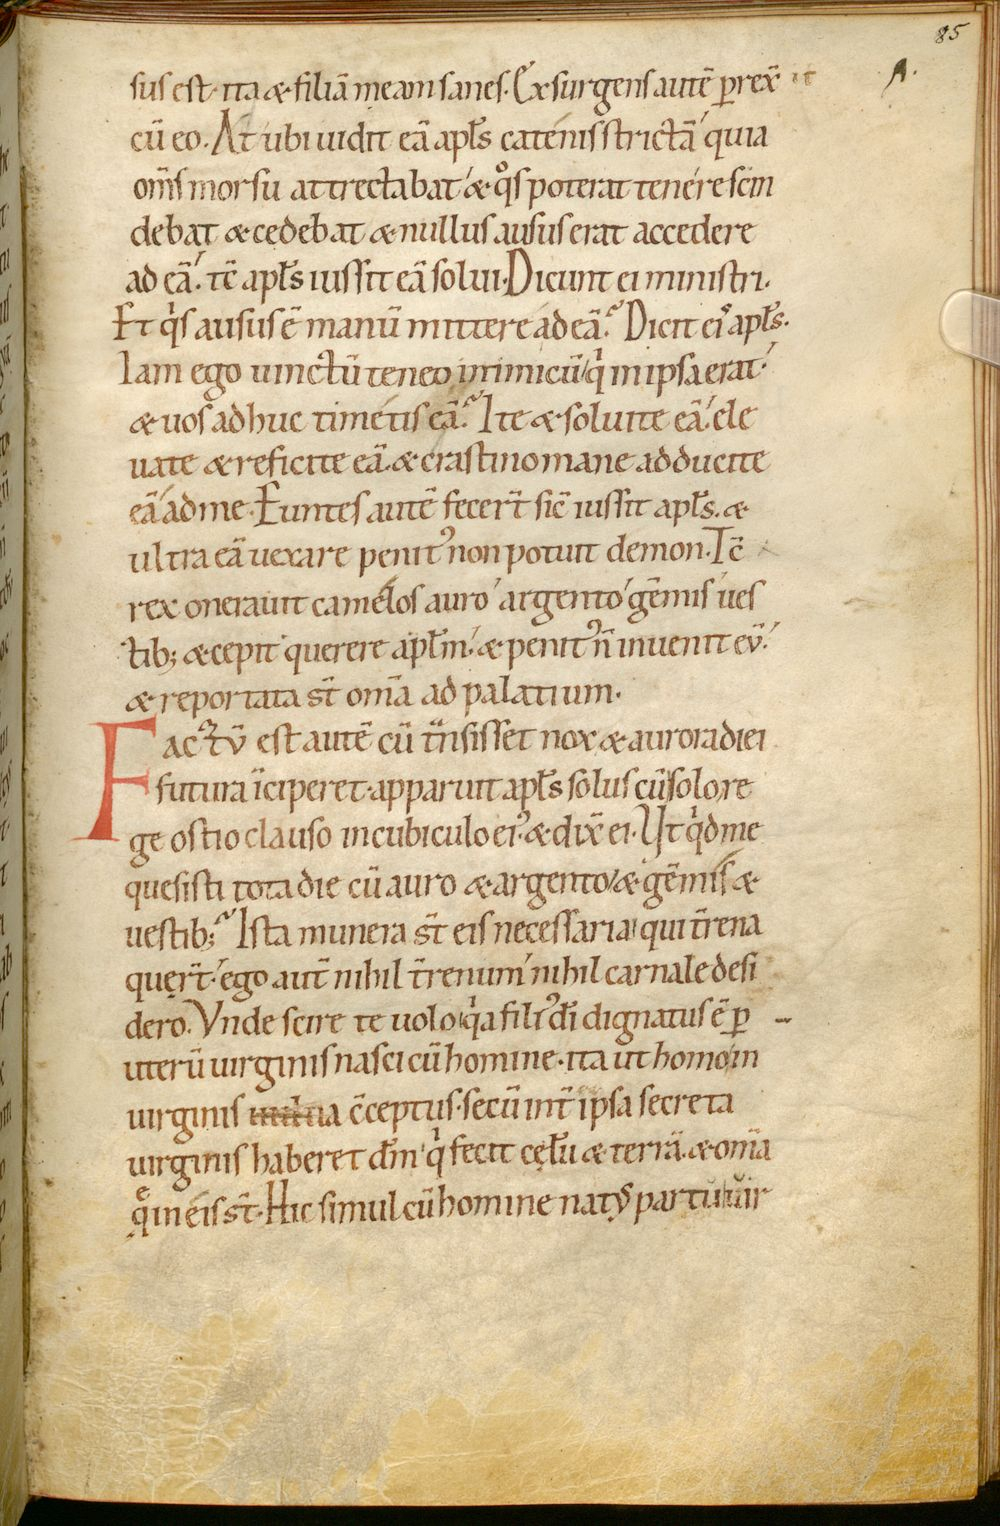 85
A.
sus est· ita & filiā meam sanes. Exsurgens autē ꝑrex̄ it
cū eo. At ubi uidit eā apl̄s catenis strictā quia
om̄s morsu attrectabat & qͦs poterat tenere scin
debat & cędebat & nullus ausus erat accedere
ad eā. tc̄ apl̄s iussit eā solui. Dicunt ei ministri.
Et qͥs ausus ē manū mittere ad eā? Dicit eiˢ apl̄s.
Iam ego uinctū teneo inimicū qͥ in ipsa erat
& uos adhuc timetis eā? Ite & soluite eā. ele
uate & reficite eā. & crastino mane adducite
eā ad me. Euntes autē fecer̄t sic̄ iussit apl̄s. &
ultra eā uexare penitꝰ non potuit demon. Tc̄
rex onerauit camelos auro argento gēmis ues
tib; & cepit querere apl̄m. & penitꝰ n̄ inuenit eū.
& reportata st̄ om̄a ad palatium.
Factū est autē cū tr̄nsisset nox & aurora diei
futura īciperet· apparuit apl̄s solus cū solo re
ge ostio clauso in cubiculo eiꝰ. & dix̄ ei. Ut qͥd me
quesisti tota die cū auro & argento & gēmis &
uestib;? Ista munera st̄ eis necessaria qui tr̄rena
quer̄t· ego aut̄ nihil tr̄renum nihil carnale desi
dero. Vnde scire te uolo qͥa filiꝰ dī dignatus ē ꝑ
uterū uirginis nasci cū homine· ita ut homo in
uirginis uulua c̄ceptus· secū int̄ ipsa secreta
uirginis haberet dm̄ qͥ fecit cęlū & terrā. & om̄a
q̄ in eis st̄. Hic simul cū homine natꝰ partu uir